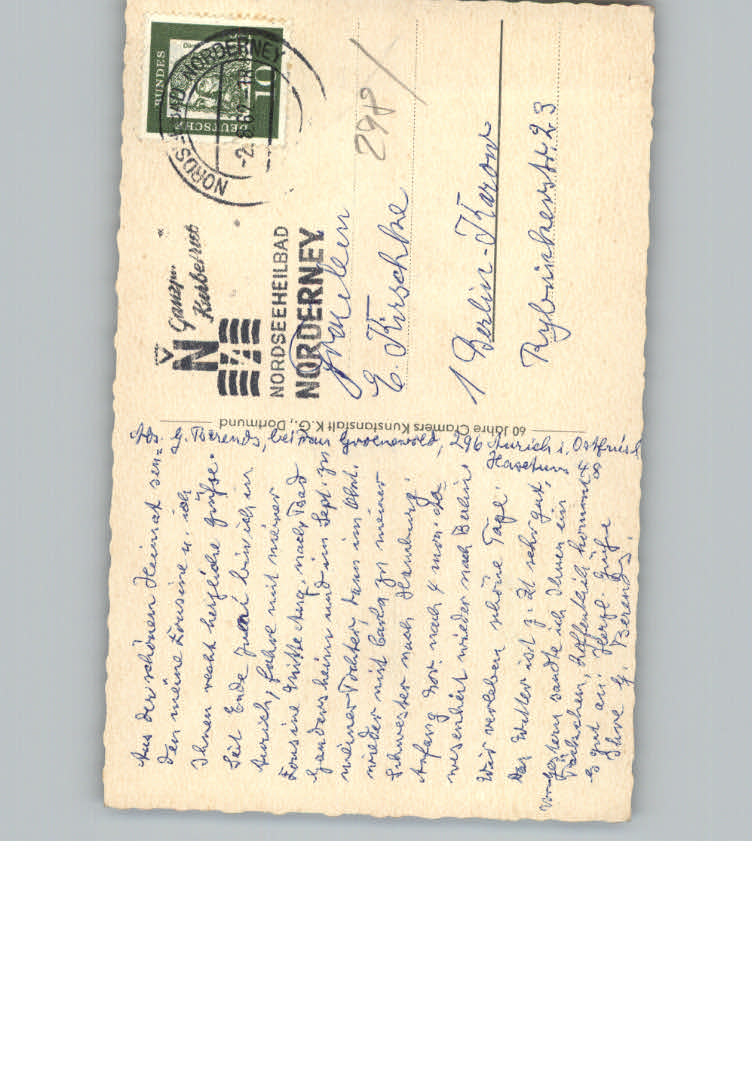 Abs. G. Berends, bei Frau Groenewold, 296 Aurich i. Ostfriesl.
Aus der schönen Heimat sen=
den meine Kousine u. ich
Ihnen recht herzliche Grüße.
Seit Ende Juni bin ich in
Aurich, fahre mit meiner
Kousine Mitte Aug. nach Bad
Gandersheim und im Sept. zu
meiner Tochter, dann im Okt.
wieder mit Carla zu meiner
Schwester nach Hamburg.
Anfang Nov. nach 4 mon. Ab
wesenheit wieder nach Berlin.
Wir verleben schöne Tage.
Das Wetter ist z. Zt. sehr gut,
vorgestern sandte ich Ihnen ein
Päckchen, hoffentlich kommt
es gut an. Herzl. Grüße
Ihre G. Berends.
60 Jahre Cramers Kunstanstalt K.G., Dortmund
NORDSEEBAD NORDERNEY
-2.8.62-18
DEUTSCHE BUNDES
10
N
„Ganzj.
Kurbetrieb"
NORDSEEHEILBAD
NORDERNEY
298/
Fräulein
E. Kirschke
1 Berlin-Karow